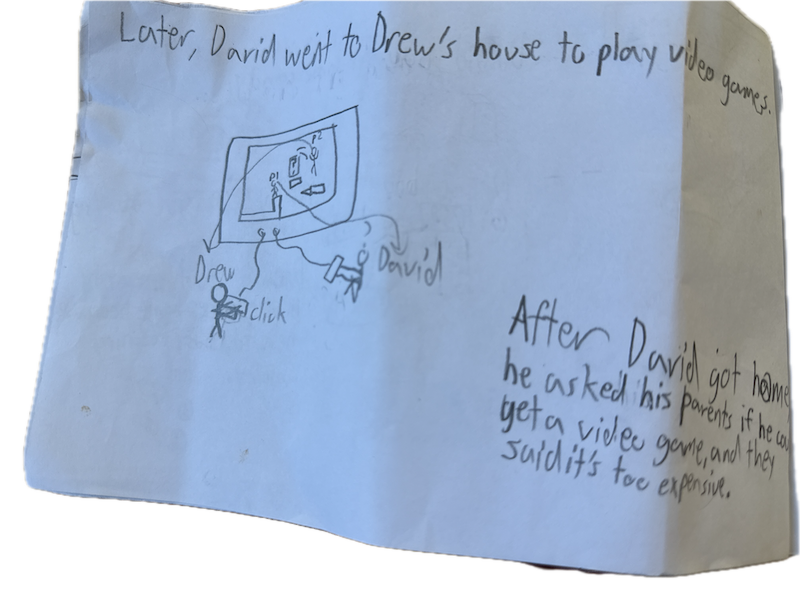 Later, David went to Drew's house to play video games.
P2
P1
Drew
David
click
After David got home
he asked his parents if he
get a video game, and they
said it's too expensive.